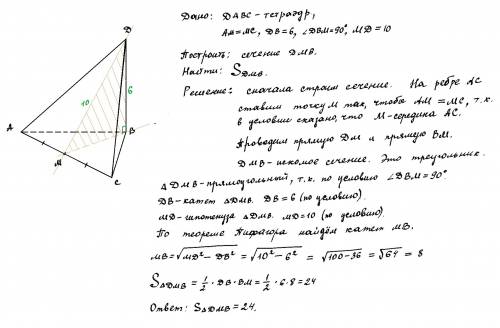 D
10
6
A
B
M
C
Дано: DABC-тетраэдр,
AM=MC, DB=6, ∠DBM=90°, MD=10
Построить: сечение DMB.
Найти: S_DMB.
Решение: сначала строим сечение. На ребре AC
ставим точку M так, чтобы AM=MC, т.к.
в условие сказано, что M-середина AC.
Проводим прямую DM и прямую BM.
DMB-искомое сечение. Это треугольник.
ΔDMB-прямоугольный, т.к. по условию ∠DBM=90°
DB-катет ΔDMB. DB=6 (по условию).
MD-гипотенуза ΔDMB. MD=10 (по условию).
По теореме Пифагора найдём катет MB.
MB=√(MD²-DB²) = √(10²-6²) = √(100-36) = √64 = 8
S_ΔDMB = 1/2 · DB·BM = 1/2 · 6·8 = 24
Ответ: S_ΔDMB = 24.